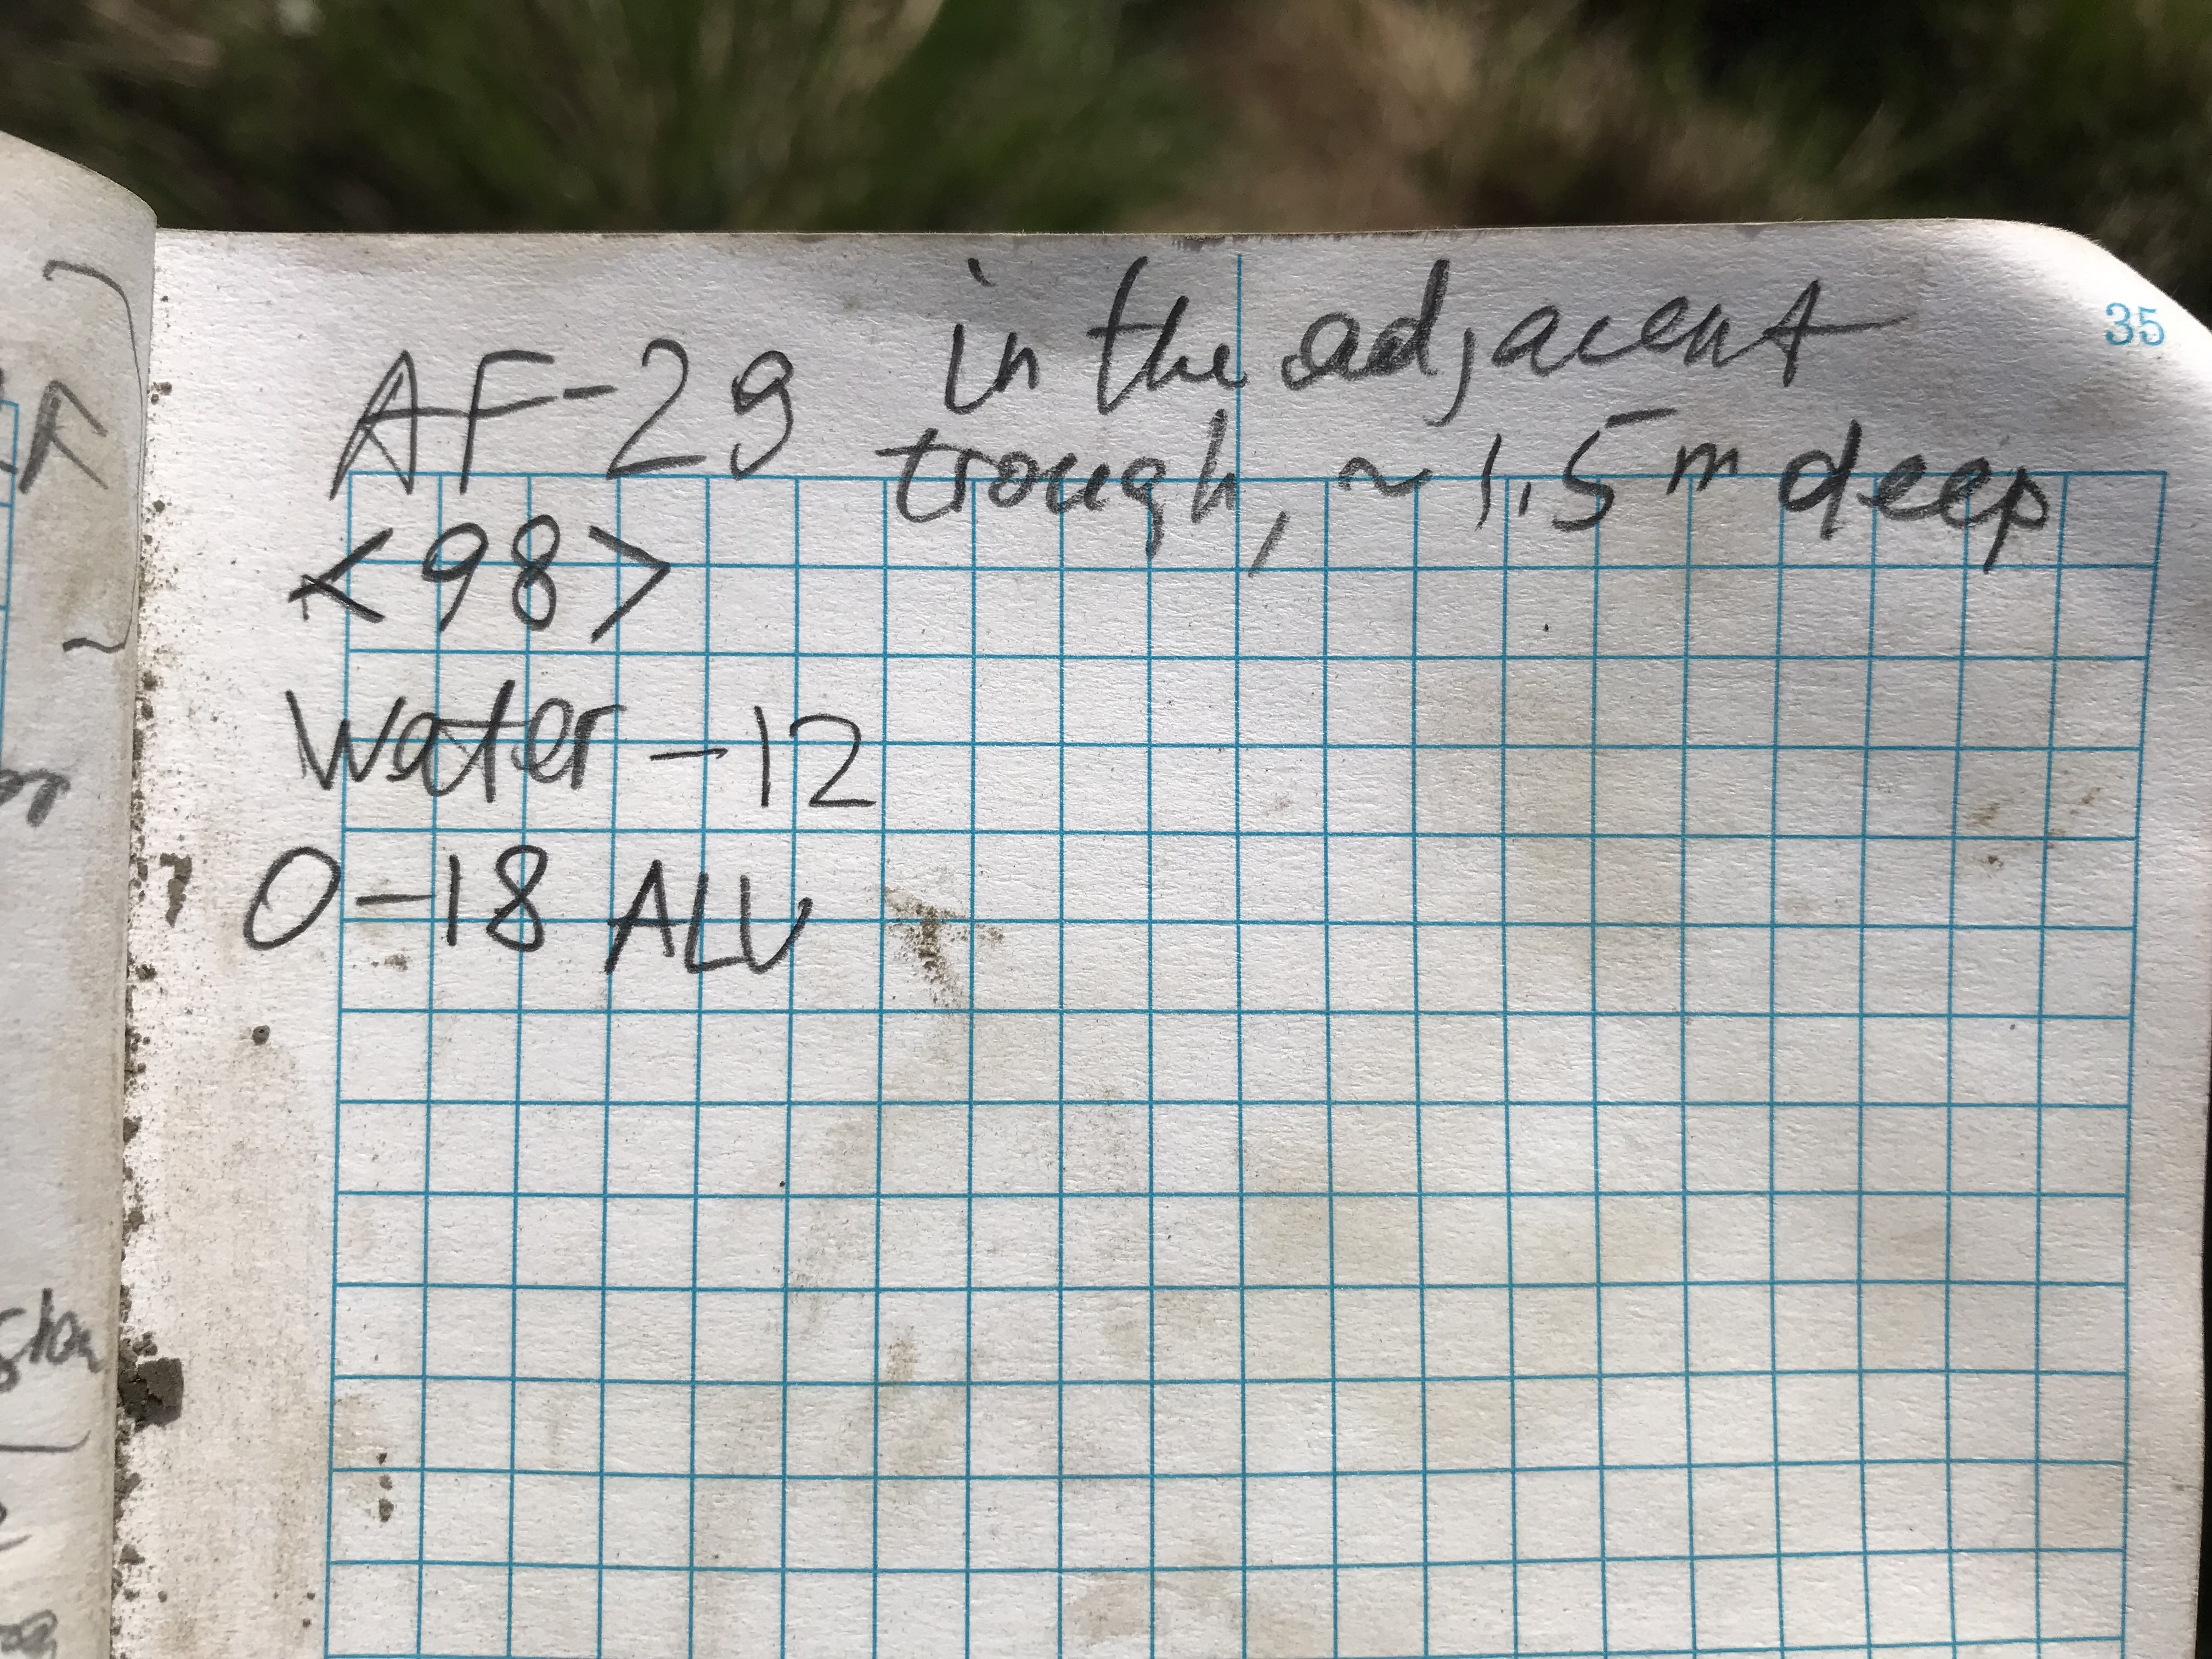 35
AF-29 in the adjacent
trough, ~1.5m deep
<98>
Water -12
0-18 ALU